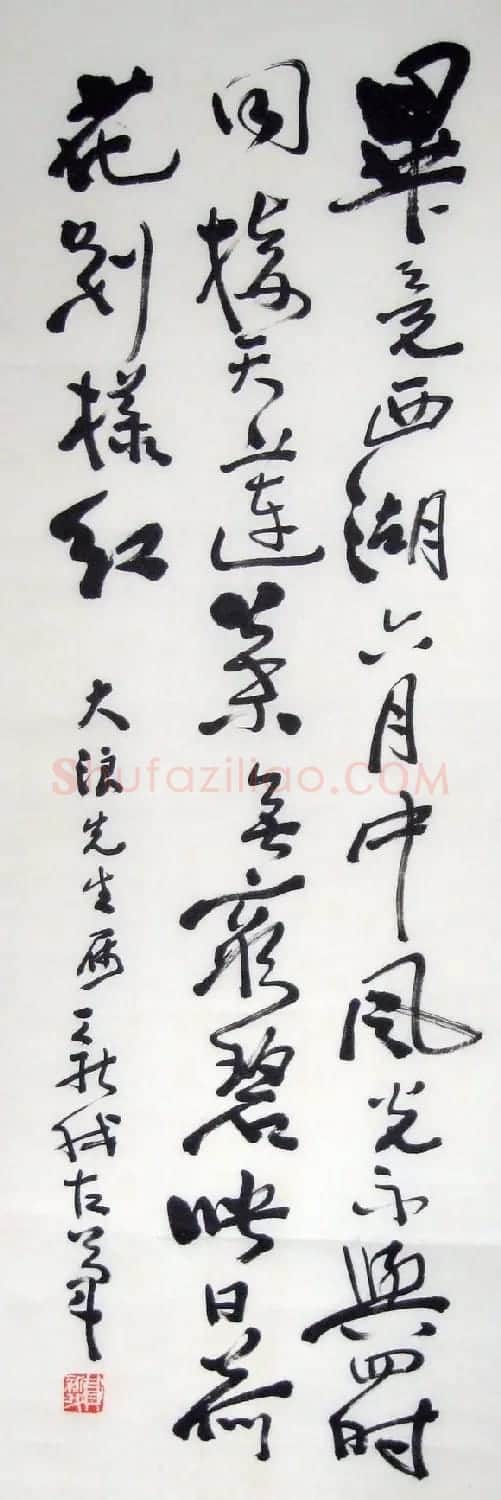 畢竟西湖六月中風光不與四时
同接天蓮葉無窮碧映日荷
花別樣紅
大浪先生屬 新我左筆
Shufaziliao.COM